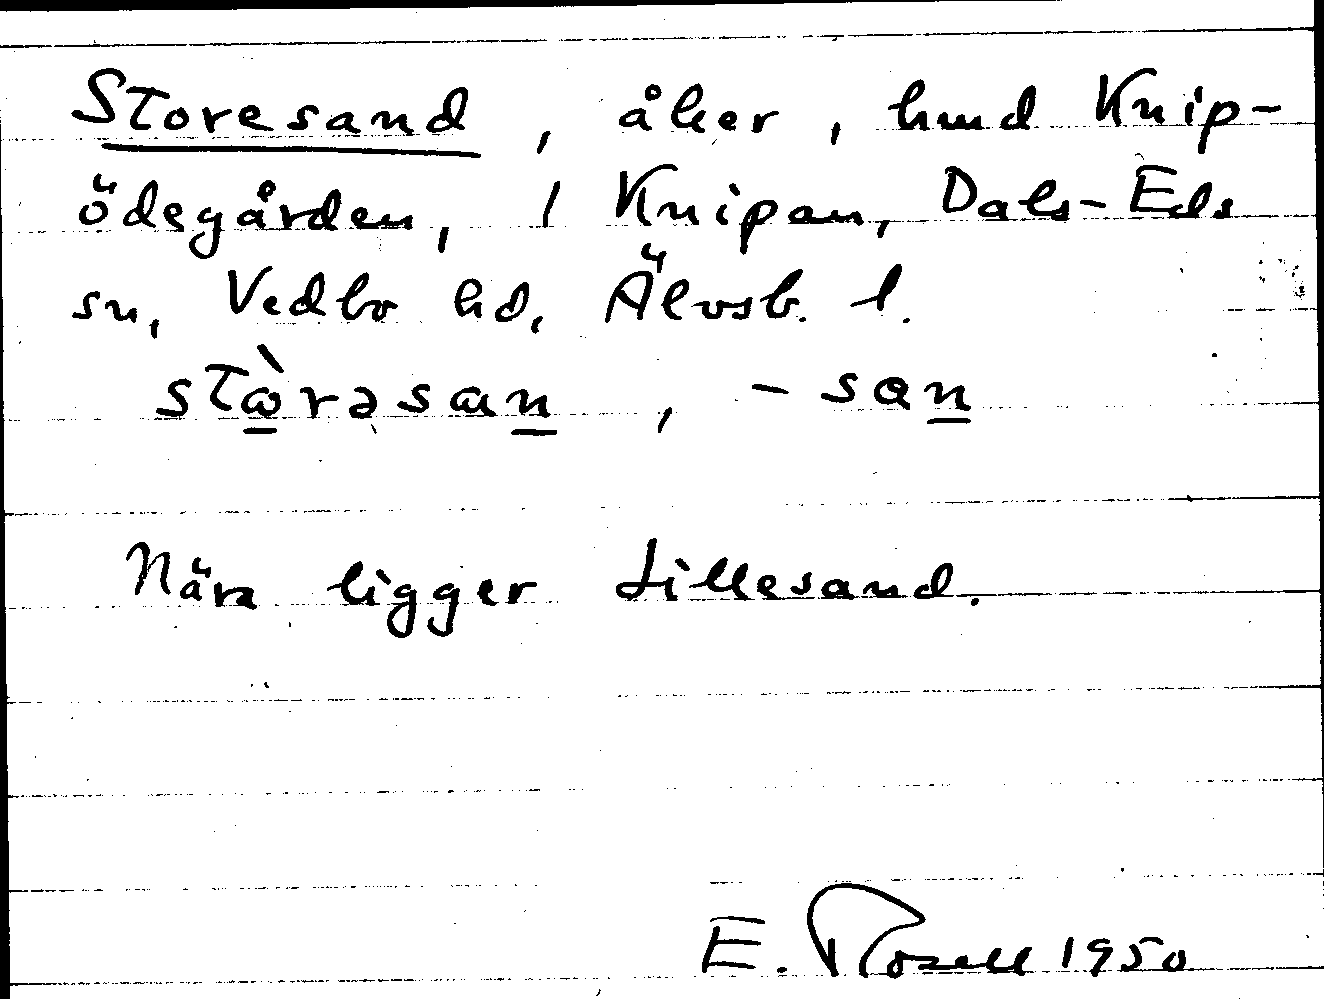 Storesand, åker, hmd Knip-
ödegården, 1 Knipan, Dals-Eds
sn, Vedbo hd, Älvsb. l.
stὼrəsan, -san
Nära ligger Lillesand.
E. Rosell 1950